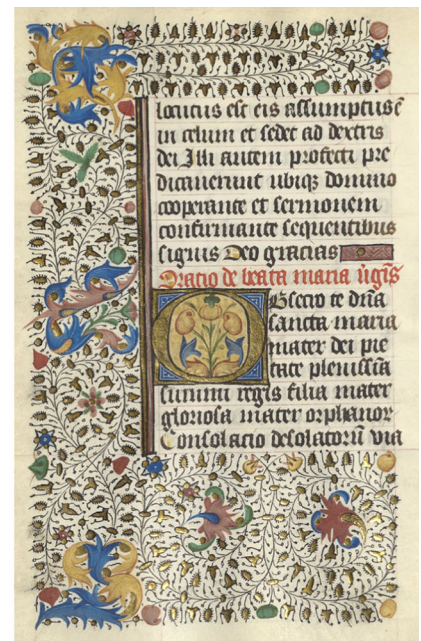 locutus est eis assumptus ē
in celum et sedet ad dextris
dei Illi autem profecti pre
dicauerunt ubiqȝ domino
cooperante et sermonem
confirmante sequentibus
signis Deo gracias
Oratio de beata maria ūgīs
Obsecro te dña
sancta maria
mater dei pie
tate plenissīa
summi regis filia mater
gloriosa mater orphanor
Consolacio desolatorū via